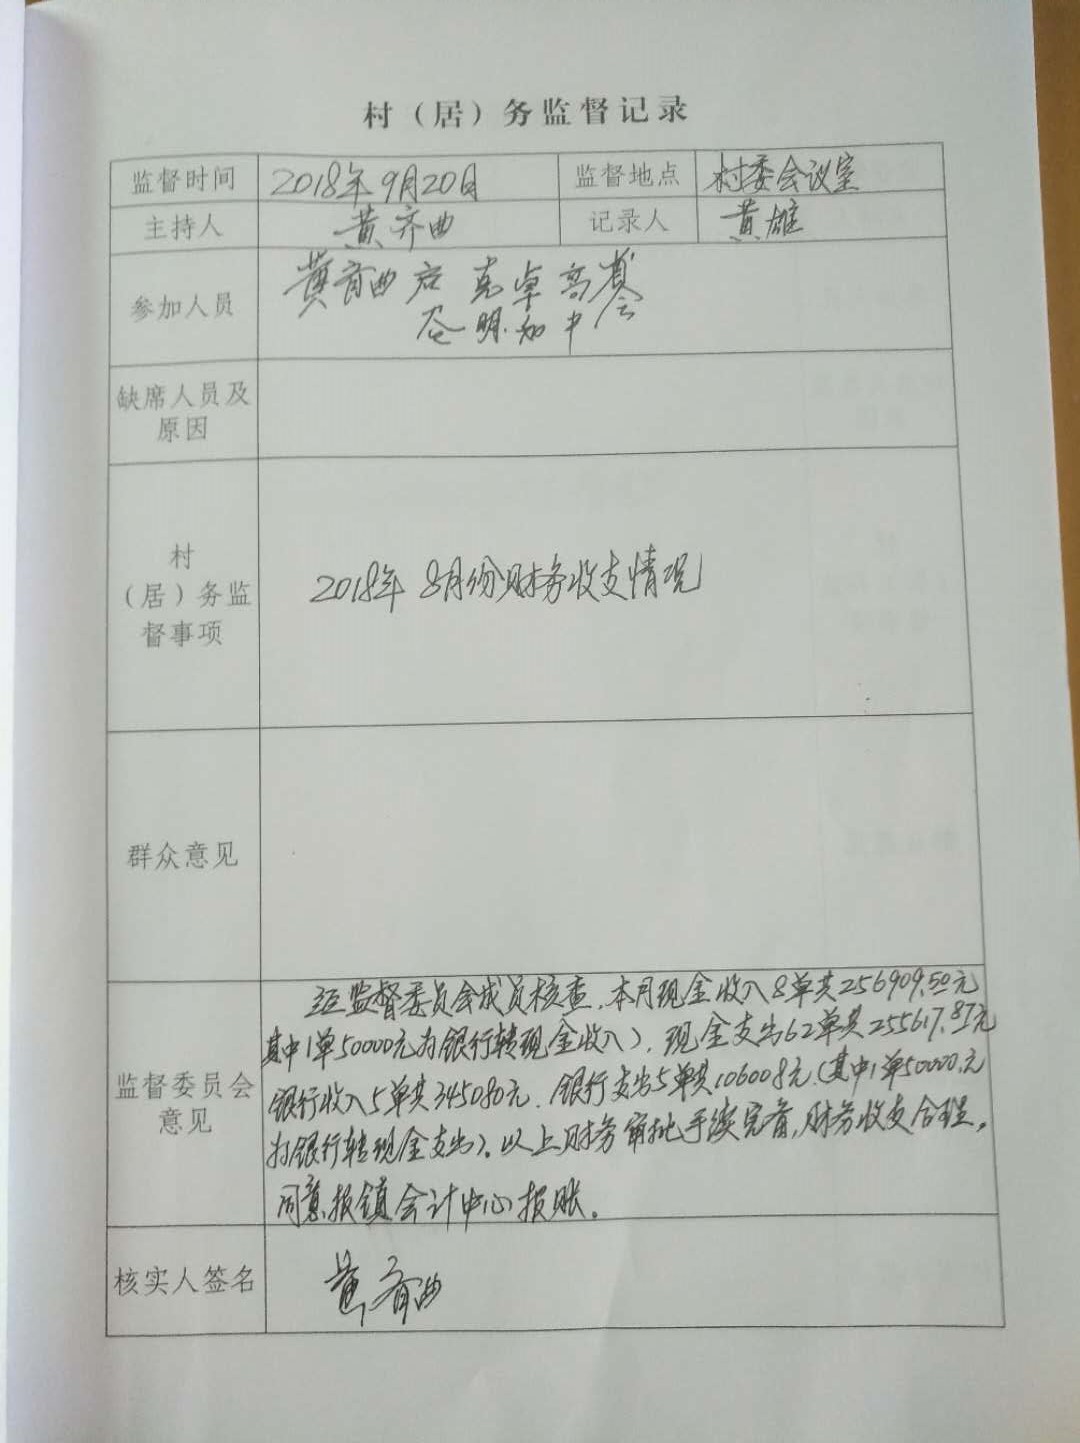 村（居）务监督记录
监督时间 2018年9月20日 监督地点 村委会议室
主持人 黄齐曲 记录人 黄雄
参加人员
缺席人员及
原因
村
（居）务监
督事项
2018年8月份财务收支情况
群众意见
监督委员会
意见
经监督委员会成员核查，本月现金收入8单共256909.50元
其中1单50000元为银行转现金收入），现金支出62单共255617.87元
银行收入5单共345080元，银行支出5单共106008元（其中1单50000元
为银行转现金支出）。以上财务审批手续完备，财务收支合理，
同意报镇会计中心报账。
核实人签名